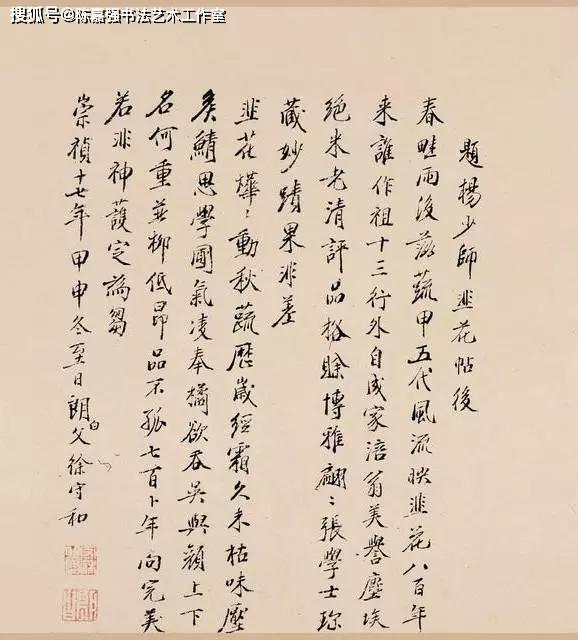 搜狐号@陈嘉强书法艺术工作室
題楊少師韭花帖後
春畦雨後茲蔬甲五代風流映韭花八百年
来誰作祖十三行外自成家涪翁美譽塵埃
絕米老清評品格賒博雅翩〻張學士珎
蔵妙蹟果非差
韭花燁〻動秋蔬歷嵗經霜久未枯味壓
矦鯖思學圃氣凌奉橘欲吞吳與顏上下
名何重並柳低昂品不孤七百卜年尚完美
若非神護定為芻
崇禎十七年甲申冬至日朗白父徐守和